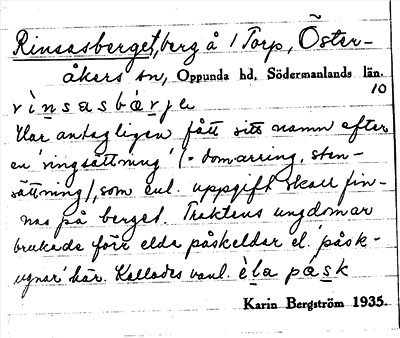 Rinsasberget, berg å 1 Torp, Öster-
åkers sn, Oppunda hd, Södermanlands län.
10
rìnsasbærje
Har antagligen fått sitt namn efter
en 'ringsättning' (= domarring, sten-
sättning), som enl. uppgift skall fin-
nas på berget. Traktens ungdomar
brukade förr elda påskeldar el. 'påsk-
ugnar' här. Kallades vanl. èla påsk
Karin Bergström 1935.